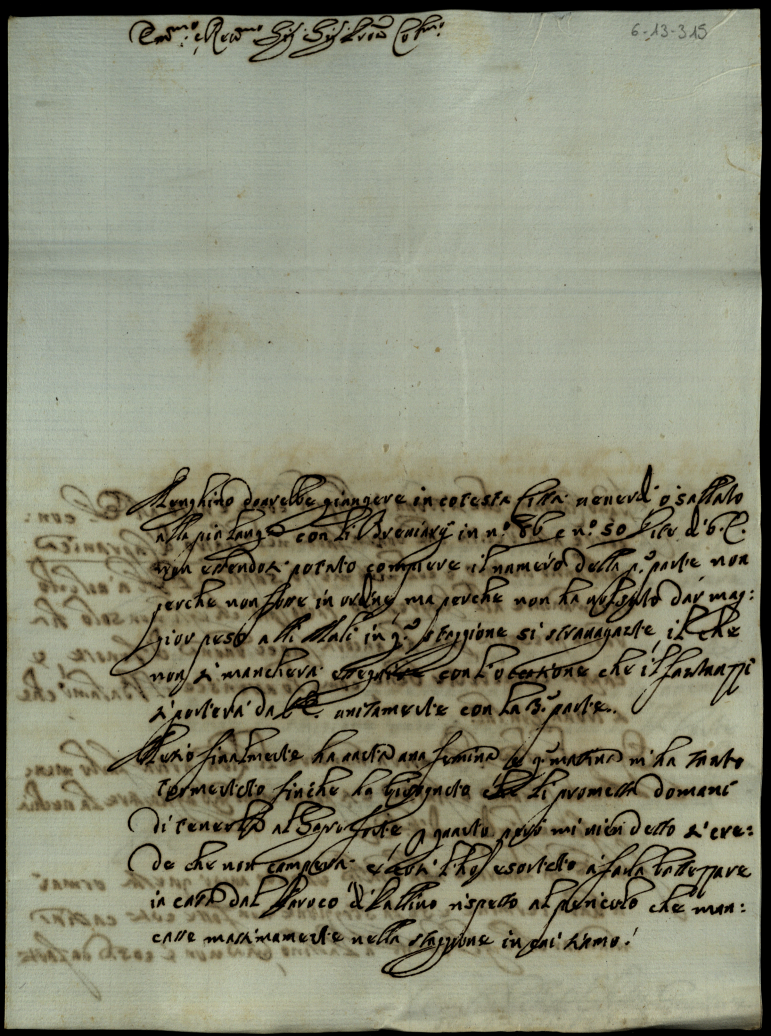 Em.mo e Rev.mo Sig. Sig. Pron Col.mo
6-13-315
Menghino dovrebbe giungere in cotesta Città venerdì o sabbato
alla più lunga con li Breviarij in n.o 86 e n.o 50
non essendosi potuto compiere il numero della p.a parte non
perche non fosse in ordine ma perche non ha voluto dar mag:
gior peso alli Muli in q.a staggione si stravagante, il che
non si mancherà con l'occasione che il Fantuzzi
si porterà da unitamente con la 3.a parte.
finalmente ha avuta una femina e q.a matina m'ha tanto
tormentato finche ha bisognato che li prometta domani
di tenerla al Sagro fonte, p quanto però mi vien detto si cre:
de che non camperà e l'ho esortato a farla battezzare
in casa dal Paroco rispetto al pericolo che man:
casse massimamente nella staggione in cui siamo.